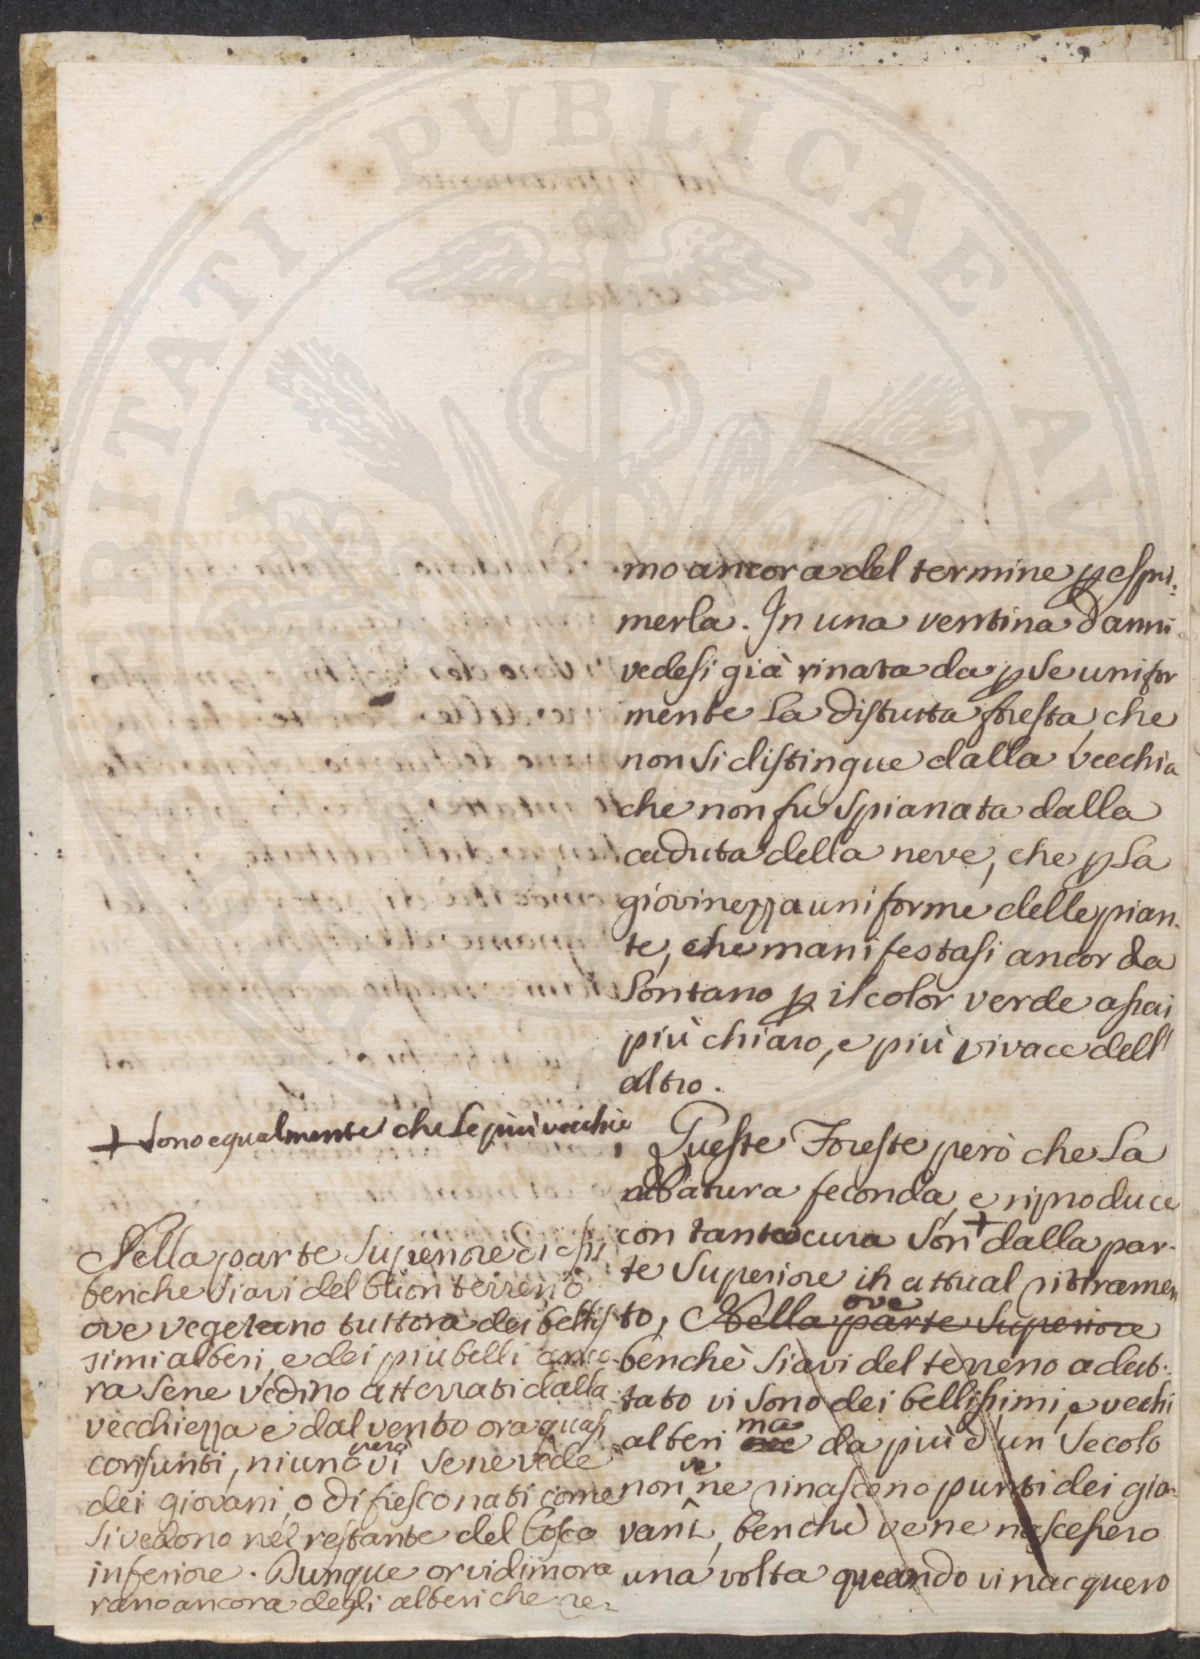 mo ancora del termine p espri-
merla. In una ventina d'anni
vedesi già rinata da p se unifor
mente la distrutta foresta, che
non si distingue dalla vecchia
che non fu spianata dalla
caduta della neve, che p la
giovinezza uniforme delle pian-
te, che manifestasi ancor da
lontano p il color verde assai
più chiaro, e più vivace dell'
altro.
Queste Foreste però che la
Natura feconda, e riproduce
con tanta cura son + dalla par-
te superiore in attual ritiramen
to, Nella parte superiore
ove
benchè siavi del terreno adat-
tato vi sono dei bellissimi, e vechi
alberi ma da più d'un secolo
non ve ne rinascono punti dei gio-
vani, benchè ve ne nascessero
una volta quando vi nacquero
+ sono egualmente che le più vecchie
Nella parte superiore di essi
benche siavi del buon terreno
ove vegetano tuttora dei bellis
simi alberi, e dei più belli anco
ra se ne vedino atterrati dalla
vecchiezza e dal vento ora quasi
consunti, niuno però vi se ne vede
dei giovani, o di fresco nati come
si vedono nel restante del bosco
inferiore. Dunque or vi dimora
rano ancora degli alberi che ne-
PVBLICAE